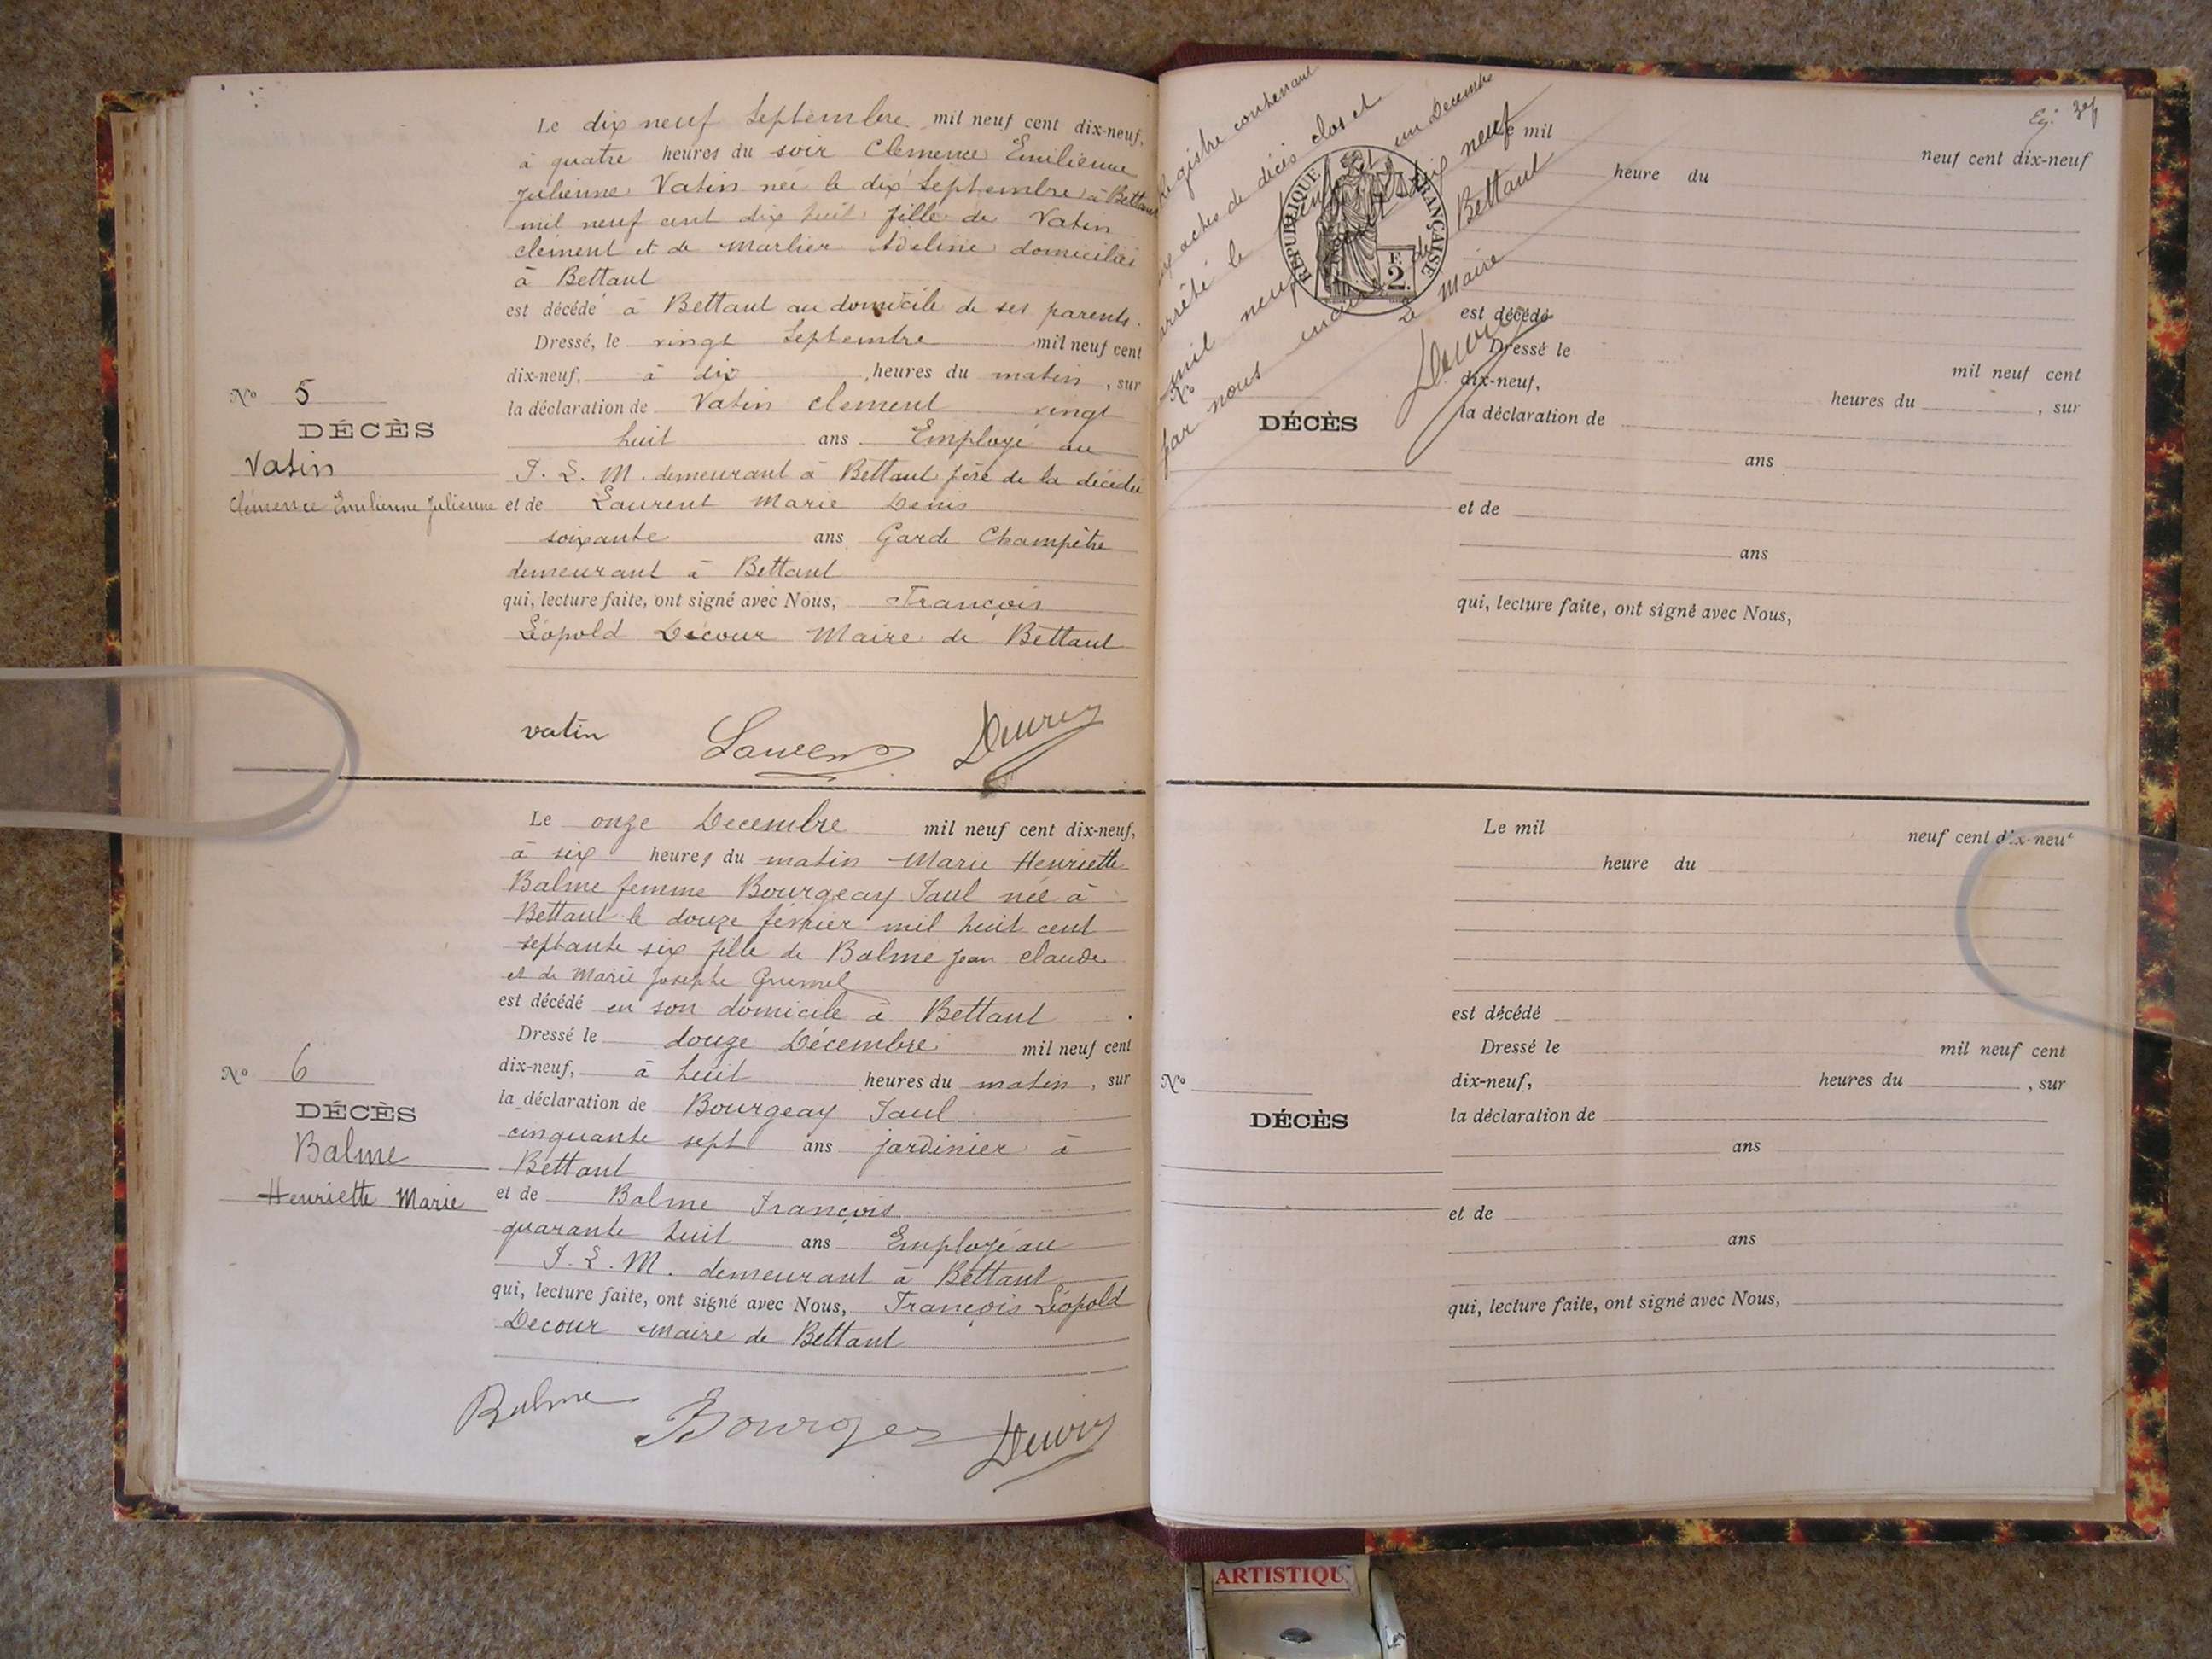 Le dix neuf Septembre mil neuf cent dix-neuf,
à quatre heures du soir Clemence Emilienne
Julienne Vatin née le dix Septembre à Bettant
mil neuf cent dix huit fille de Vatin
clément et de Marlier Adeline domiciliés
à Bettant
est décédé à Bettant au domicile de ses parents.
Dressé, le vingt Septembre mil neuf cent
dix-neuf, à dix heures du matin, sur
la déclaration de Vatin clement vingt
huit ans Employé au
P. L. M. demeurant à Bettant père de la décédée
et de Laurent Marie Denis
soixante ans Garde Champêtre
demeurant à Bettant
qui, lecture faite, ont signé avec Nous, François
Léopold Décour Maire de Bettant
No 5
DÉCÈS
Vatin
Clémence Emilienne Julienne
vatin Laurent
Le onze Decembre mil neuf cent dix-neuf,
à six heures du matin Marie Henriette
Balme femme Bourgeay Paul née à
Bettant le douze février mil huit cent
septante six fille de Balme Jean claude
et de Marie Josephte Grumel
est décédé en son domicile à Bettant
Dressé le douze Décembre mil neuf cent
dix-neuf, à huit heures du matin, sur
la déclaration de Bourgeay Paul
cinquante sept ans jardinier à
Bettant
et de Balme François
quarante huit ans Employé au
P. L. M. demeurant à Bettant
qui, lecture faite, ont signé avec Nous, François Léopold
Decour maire de Bettant
No 6
DÉCÈS
Balme
Henriette Marie
Balme
registre contenant
actes de décès clos et
arrêté le un Decembre
mil neuf cent dix neuf
par nous maire de Bettant
Le Maire
RÉPUBLIQUE FRANÇAISE
F. 2.
37
Le mil neuf cent dix-neuf
heure du
est décédé
Dressé le mil neuf cent
dix-neuf, heures du , sur
la déclaration de
ans
et de
ans
qui, lecture faite, ont signé avec Nous,
No
DÉCÈS
Le mil neuf cent dix-neuf
heure du
est décédé
Dressé le mil neuf cent
dix-neuf, heures du , sur
la déclaration de
ans
et de
ans
qui, lecture faite, ont signé avec Nous,
No
DÉCÈS
ARTISTIQU